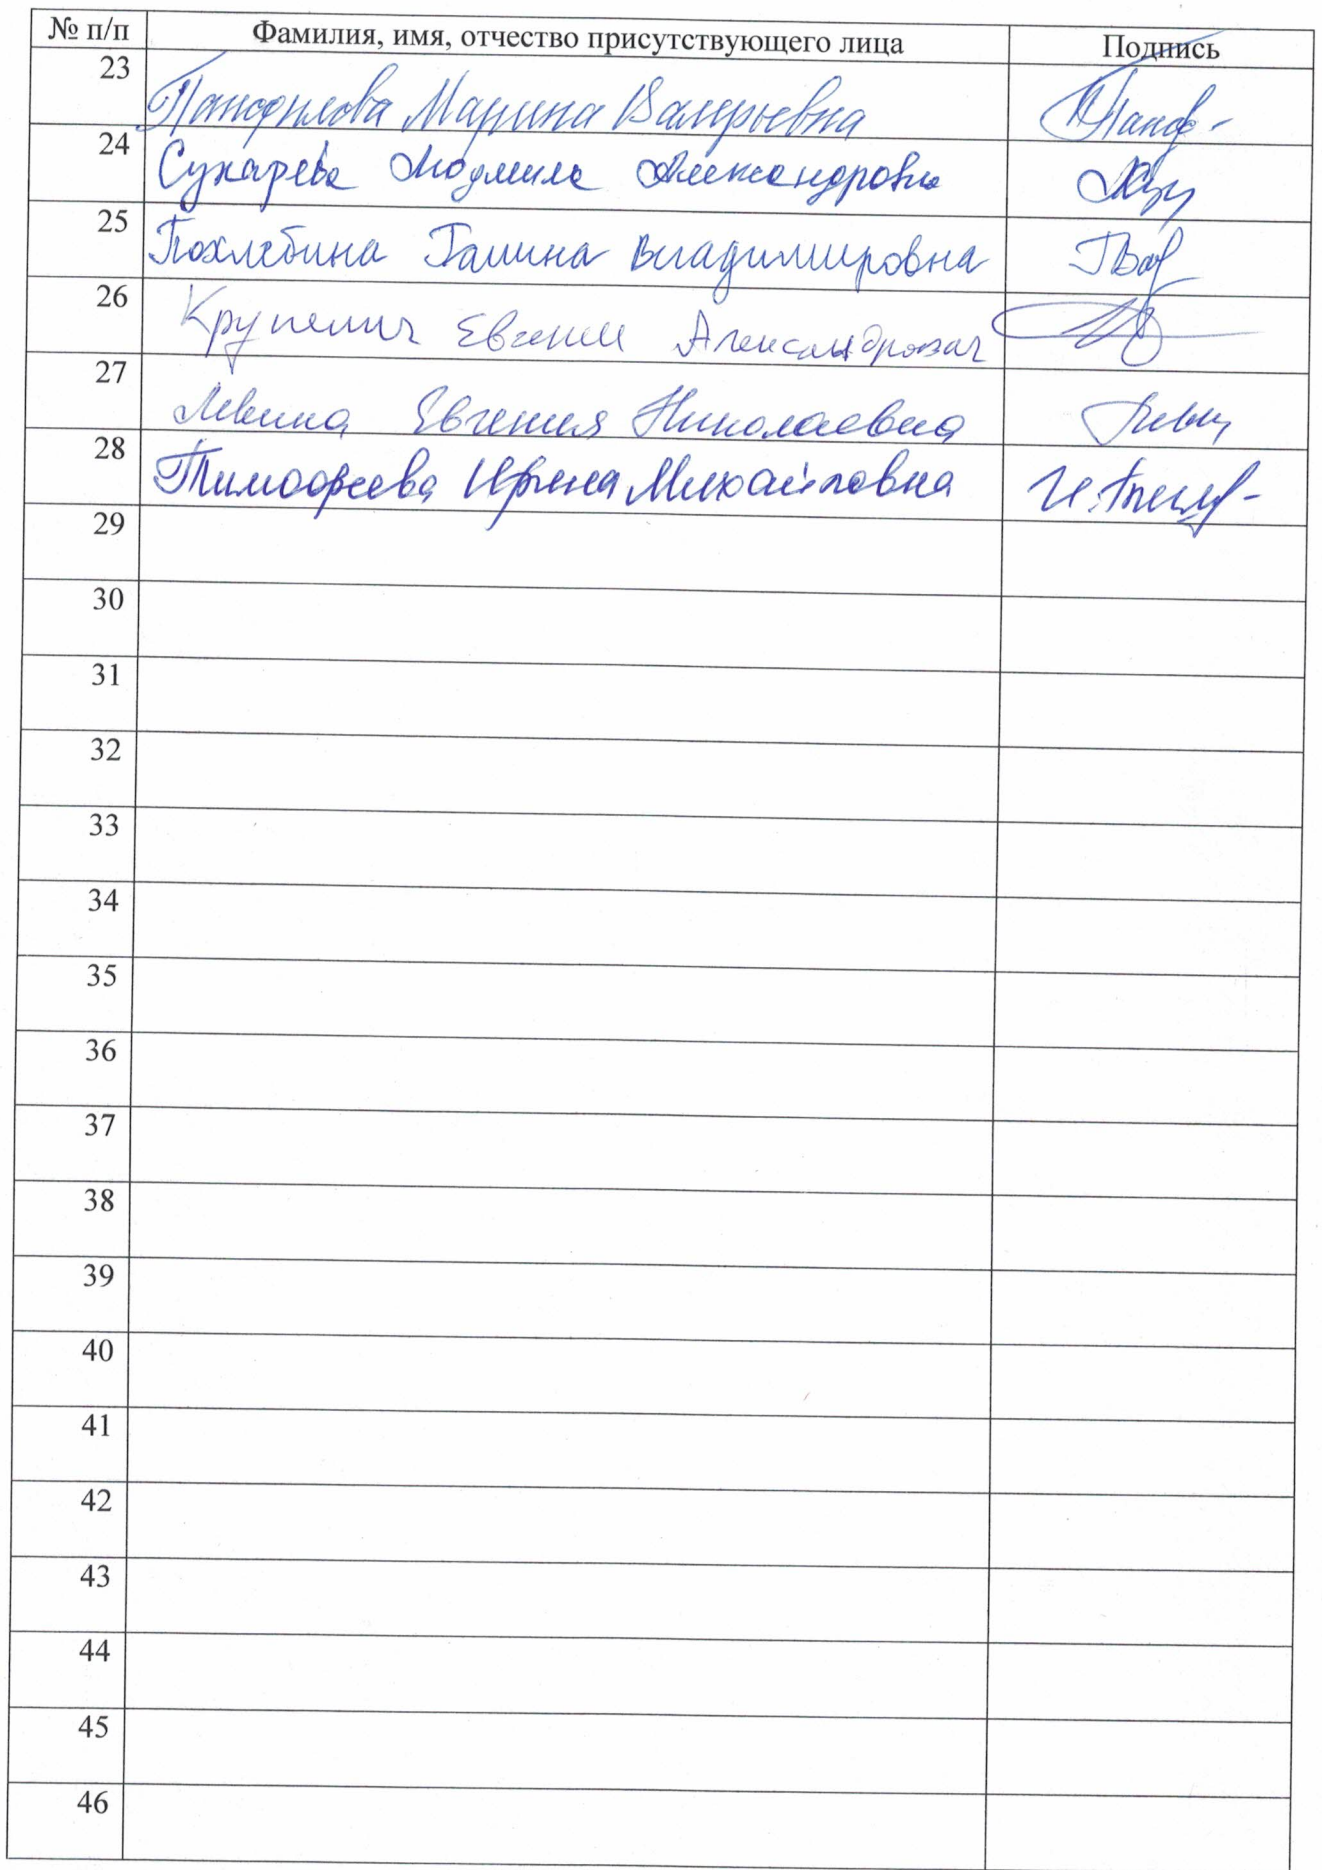 № п/п Фамилия, имя, отчество присутствующего лица Подпись
23 Панфилова Марина Валерьевна
24 Сухарева Людмила Александровна
25 Похлебина Галина Владимировна
26 Евгений Александрович
27 Левина Евгения Николаевна
28 Тимофеева Ирина Михайловна
29
30
31
32
33
34
35
36
37
38
39
40
41
42
43
44
45
46